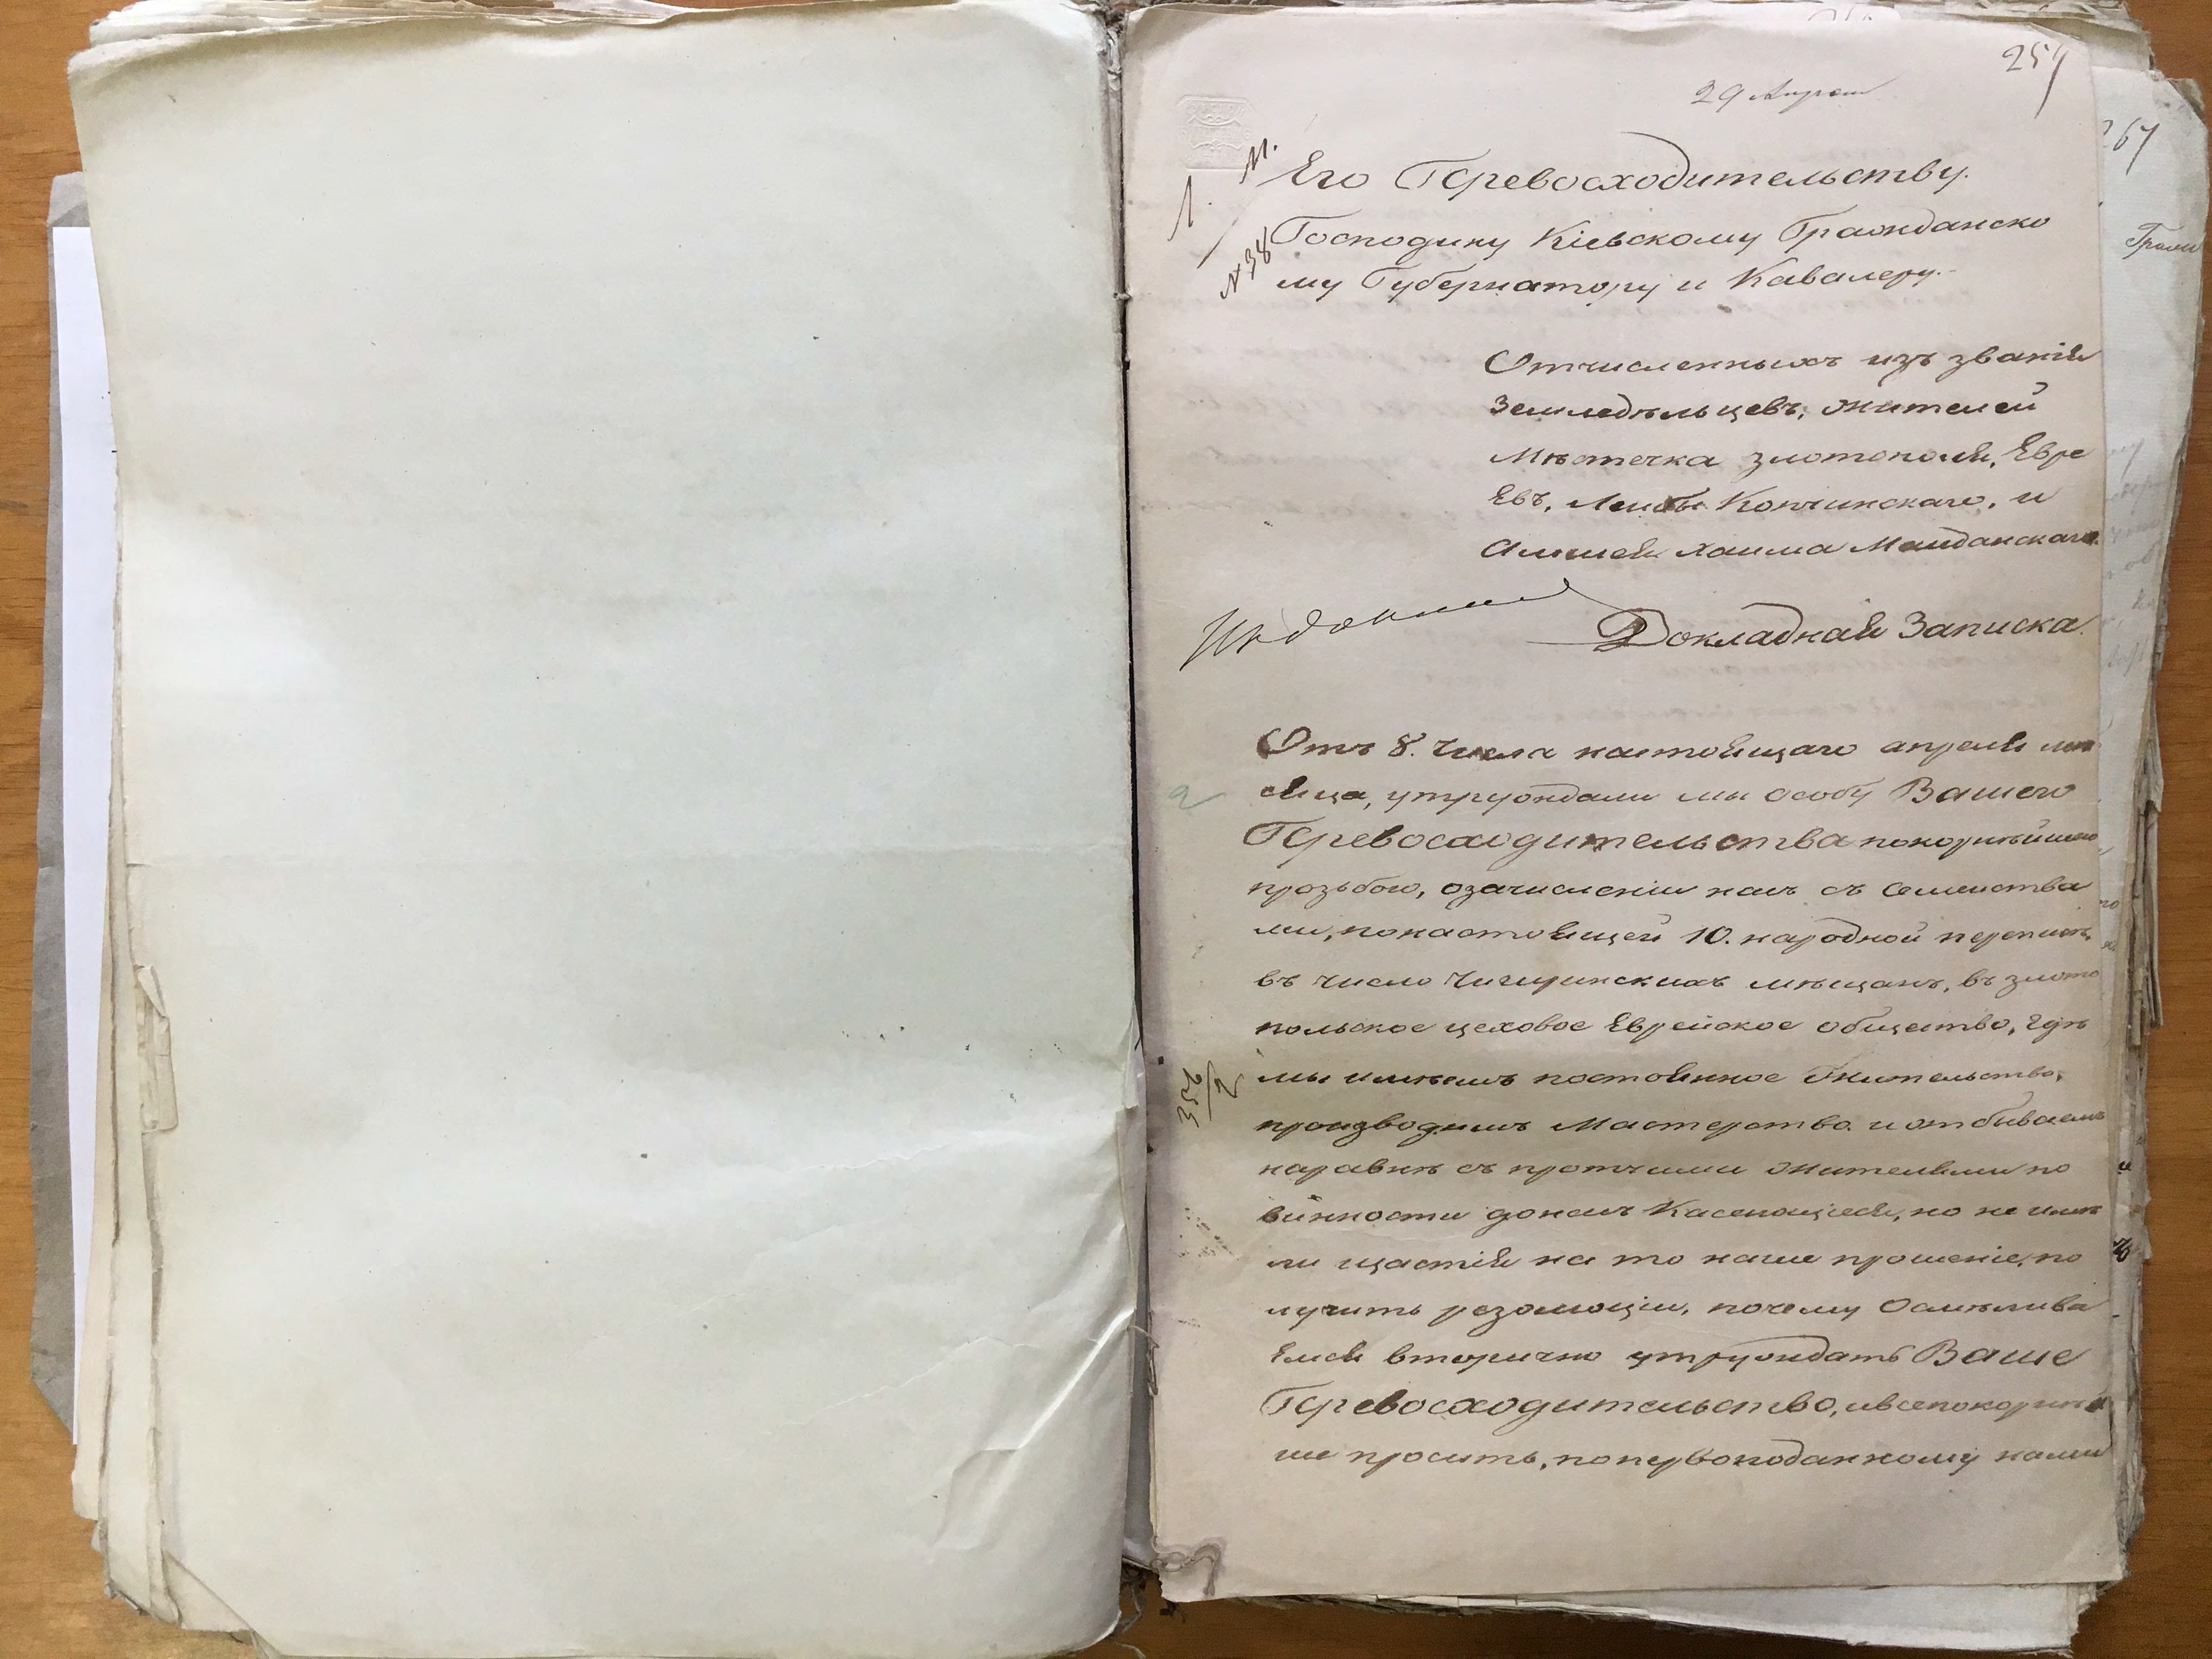 29 Апреля
Его Превосходительству.
Господину Кіевскому Гражданско
му Губернатору и Кавалеру.
№ 38
Отчисленныхъ изъ званія
Земледѣльцевъ, жителей
Мѣстечка Златополя, Евре
Евъ, Лейбы Копчинскаго, и
Хаима Майданскаго.
Докладная Записка.
Отъ 8. Числа настоящаго апреля мѣ
сяца, утруждали мы особу Вашего
Превосходительства покорнѣйшею
прозьбою, озачисленіи насъ съ Семейства
ми, понастоящей 10. народной переписѣ,
въ число Чигиринскихъ мѣщанъ, въ злато
польское цеховое Еврейское общество, гдѣ
мы имѣемъ постоянное Жительство,
производимъ Мастерство и отбываемъ
наравнѣ съ протчими жителями по
винности донасъ Касающіеся, но не имѣ
ли щастія на то наше прошеніе, по
лучить резолюціи, почему Осмѣлива
Емся вторично утруждать Ваше
Превосходительство, ивсепокорнѣй
ше просить, попервоподанному нами